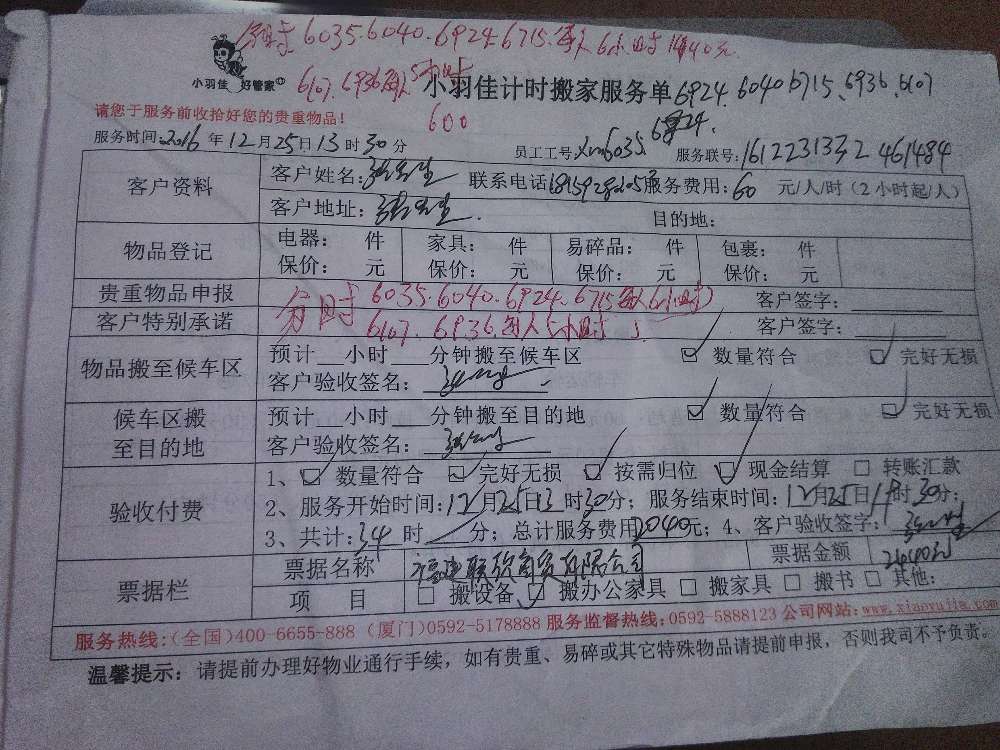 6035.6040.6924.6715.每人6小时
小羽佳 好管家
6107.6936每人5小时
小羽佳计时搬家服务单 6924.6040 6715.6936.6107
请您于服务前收拾好您的贵重物品!
600
6924.
服务时间:2016年12月25日13时30分 员工工号:xm6035 服务联号:1612231332 461484
客户资料 客户姓名:张先生 联系电话 服务费用:60 元/人/时(2小时起/人)
客户地址:张先生. 目的地:
物品登记 电器: 件 家具: 件 易碎品: 件 包裹: 件
保价: 元 保价: 元 保价: 元 保价: 元
贵重物品申报 6035.6040.6924.6715每人6小时 客户签字:
客户特别承诺 分时 6107.6936.每人5小时 客户签字:
物品搬至候车区 预计 小时 分钟搬至候车区 ☑ 数量符合 ☑ 完好无损
客户验收签名:
候车区搬至目的地 预计 小时 分钟搬至目的地 ☑ 数量符合 ☑ 完好无损
客户验收签名:
验收付费 1、☑ 数量符合 ☑ 完好无损 ☑ 按需归位 ☑ 现金结算 □ 转账汇款
2、服务开始时间:12月25日13时30分;服务结束时间:12月25日19时30分;
3、共计:34时 分;总计服务费用2040元;4、客户验收签字:
票据栏 票据名称 有限公司 票据金额 2040元
项 目 □ 搬设备 ☑ 搬办公家具 □ 搬家具 □ 搬书 □ 其他:
服务热线:(全国)400-6655-888 (厦门)0592-5178888 服务监督热线:0592-5888123 公司网站:www.xiaoyujia.com
温馨提示:请提前办理好物业通行手续,如有贵重、易碎或其它特殊物品请提前申报,否则我司不予负责。